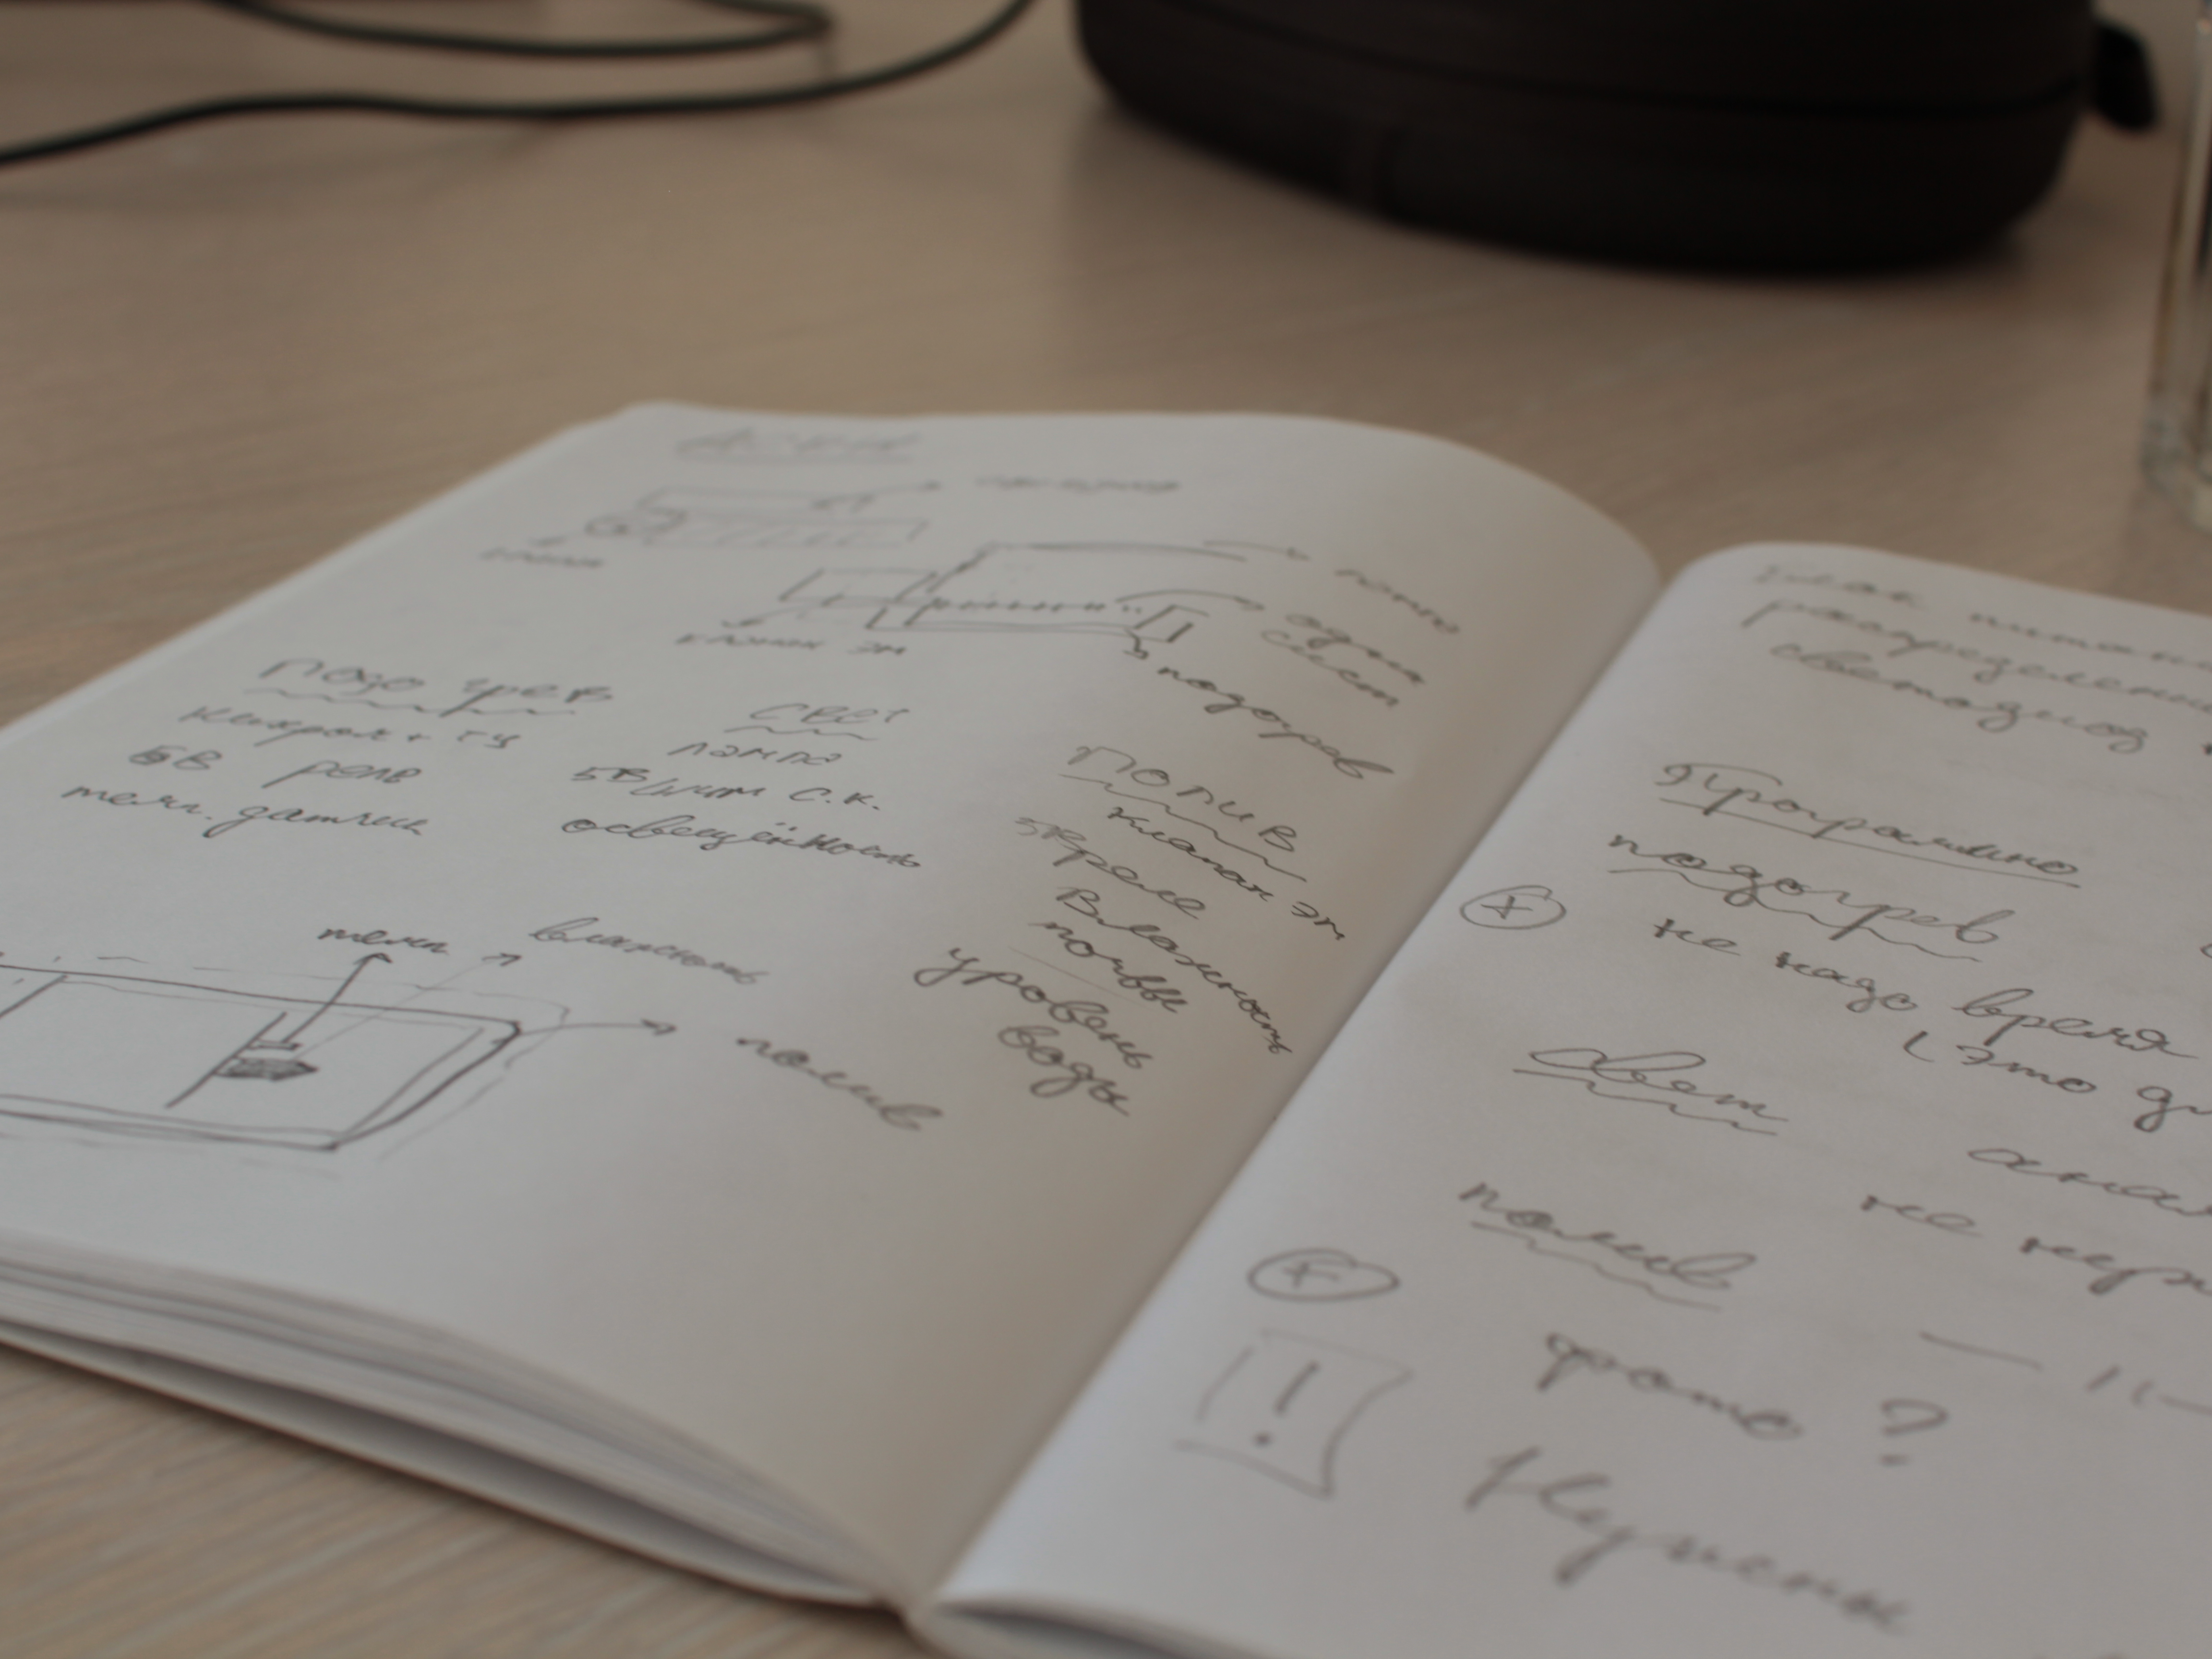 клапан эм
полив
один
сист
подогрев
Подогрев
нихром + тц
5В реле
темп. датчик
свет
лампа
5В/шим с.к.
освещённость
Полив
клапан эм
5В реле
Влажность
почвы
уровень
воды
темп
влажность
полив
Блок питан
распределени
светодиод
Програмно
подогрев
не надо время
(это д
свет
анал
не нуж
полив
— 11 —
фото ?
!